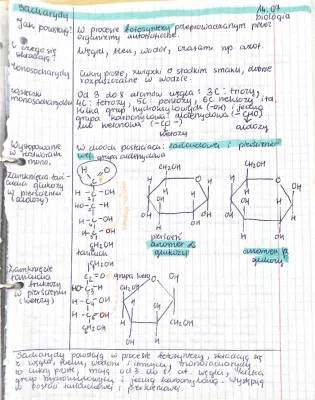 Sacharydy
14.04
biologia
Jak powstają?
W procesie fotosyntezy przeprowadzanym przez
organizmy autotroficzne.
Z czego się
składają?
Węgla, tlenu, wodoru, czasami np. azot.
Monosacharydy
Cukry proste, związki o słodkim smaku, dobrze
rozpuszczalne w wodzie.
monosacharydów
Od 3 do 8 atomów węgla: 3C: triozy,
4C: tetrozy, 5C: pentozy, 6C heksozy itd.
kilka grup hydroksylowych (-OH) i jedną
grupę karbonylową: aldehydową (-CHO)
lub ketonową (-CO-)
aldozy
ketozy
Występowanie
w roztworach
mono.
W dwóch postaciach: łańcuchowej i pierścieniowej
grupa aldehydowa
Zamknięcie łań-
cucha glukozy
w pierścień
(aldozy)
H
O
C
H-C-OH
HO-C-H
H-C-OH
H-C-OH
CH₂OH
łańcuch
CH₂OH
O
H
OH
pierścień
anomer α
glukozy
CH₂OH
O
OH
H
anomer β
glukozy
Zamknięcie
łańcucha
fruktozy
w pierścień
(ketozy)
CH₂OH
C=O grupa keto
HO-C-H
H-C-OH
H-C-OH
CH₂OH
O
OH
CH₂OH
Sacharydy powstają w procesie fotosyntezy, składają się
z węgla, tlenu, wodoru i innych, monosacharydy
to cukry proste, mają od 3 do 8 at. węgla, kilka
grup hydroksylowych i jedną karbonylową. Występują
w postaci łańcuchowej i pierścieniowej.